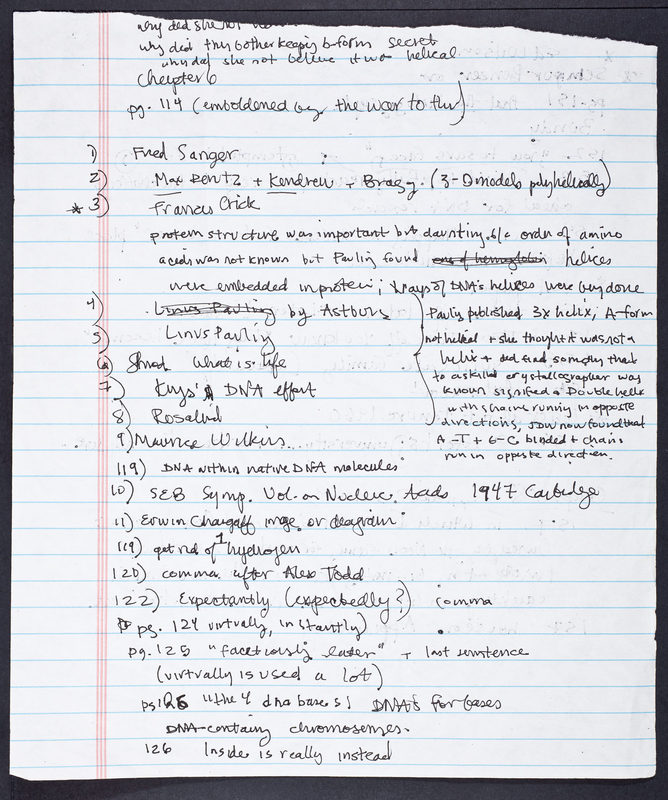 why did she not
why did they bother keeping b-form secret
why did she not believe it was helical
Chapter 6
pg. 114 (emboldened by the war to thy)
1) Fred Sanger
2) Max Perutz + Kendrew + Bragg. (3-D models polyhelically)
* 3) Francis Crick
protein structure was important but daunting b/c order of amino
acids was not known but Pauling found ens of hemoglobin helices
were embedded in protein; Xrays of DNA's helices were being done
4) Linus Pauling by Astbury
5) Linus Pauling
6) Shrod What is life
7) Kings DNA effort
8) Rosalind
9) Maurice Wilkins
Pauling published 3x helix, A-form
not helical + she thought it was not a
helix + did find something that
to a skilled crystallographer was
known signified a Double helix
with chains running in opposite
directions, JDW now found that
A-T + G-C binded + chains
run in opposite direction.
119) DNA within native DNA molecules"
10) SEB Symp. Vol. on Nucleic Acids 1947 Cambridge
11) Erwin Chargaff image or diagram
119) get rid of 1 hydrogen
120) comma after Alex Todd
122) Expectantly (expectedly?) comma
pg. 124 virtually, instantly)
pg. 125 "facetiously later" + last sentence
(virtually is used a lot)
pg 125 "the 4 dna bases; DNA's four bases
DNA-containing chromosomes.
126 Inside is really instead